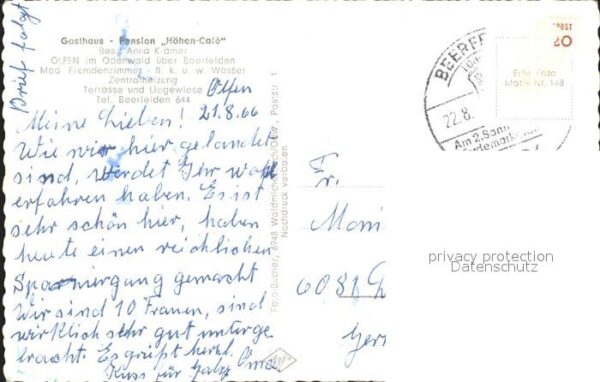 Brief folgt
Gasthaus - Pension „Höhen-Café"
Bes. Anna Krämer
OLFEN im Odenwald über Beerfelden
Mod. Fremdenzimmer - fl. k. u. w. Wasser
Zentralheizung
Terrasse und Liegewiese
Tel. Beerfelden 644
Olfen
21.8.66
Meine Lieben!
Wie wir hier gelandet
sind, werdet Ihr wohl
erfahren haben. Es ist
sehr schön hier, haben
heute einen reichlichen
Spaziergang gemacht
Wir sind 10 Frauen, sind
wirklich sehr gut unterge
bracht. Es grüßt herzl.
Oma
Kuss für
Foto-Bucher, 6948 Waldmichelbach/Odw., Poststr. 1
Nachdruck verboten
BEERF
22.8.
Am 2. Sonn
20
Echt Foto
Motiv Nr. 148
Fr.
Moni
6081 G
Ger
privacy protection
Datenschutz